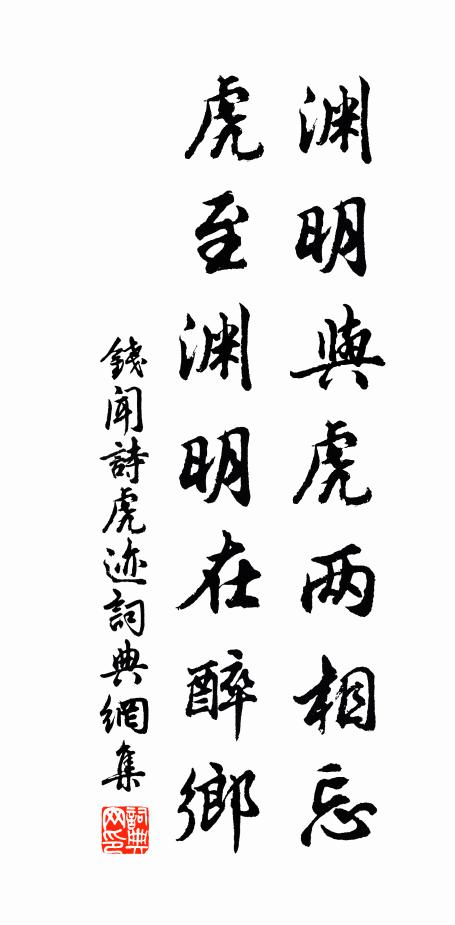 渊明與虎两相忘
虎至渊明在醉鄉
錢聞詩虎迹詞典網集
詞典网印